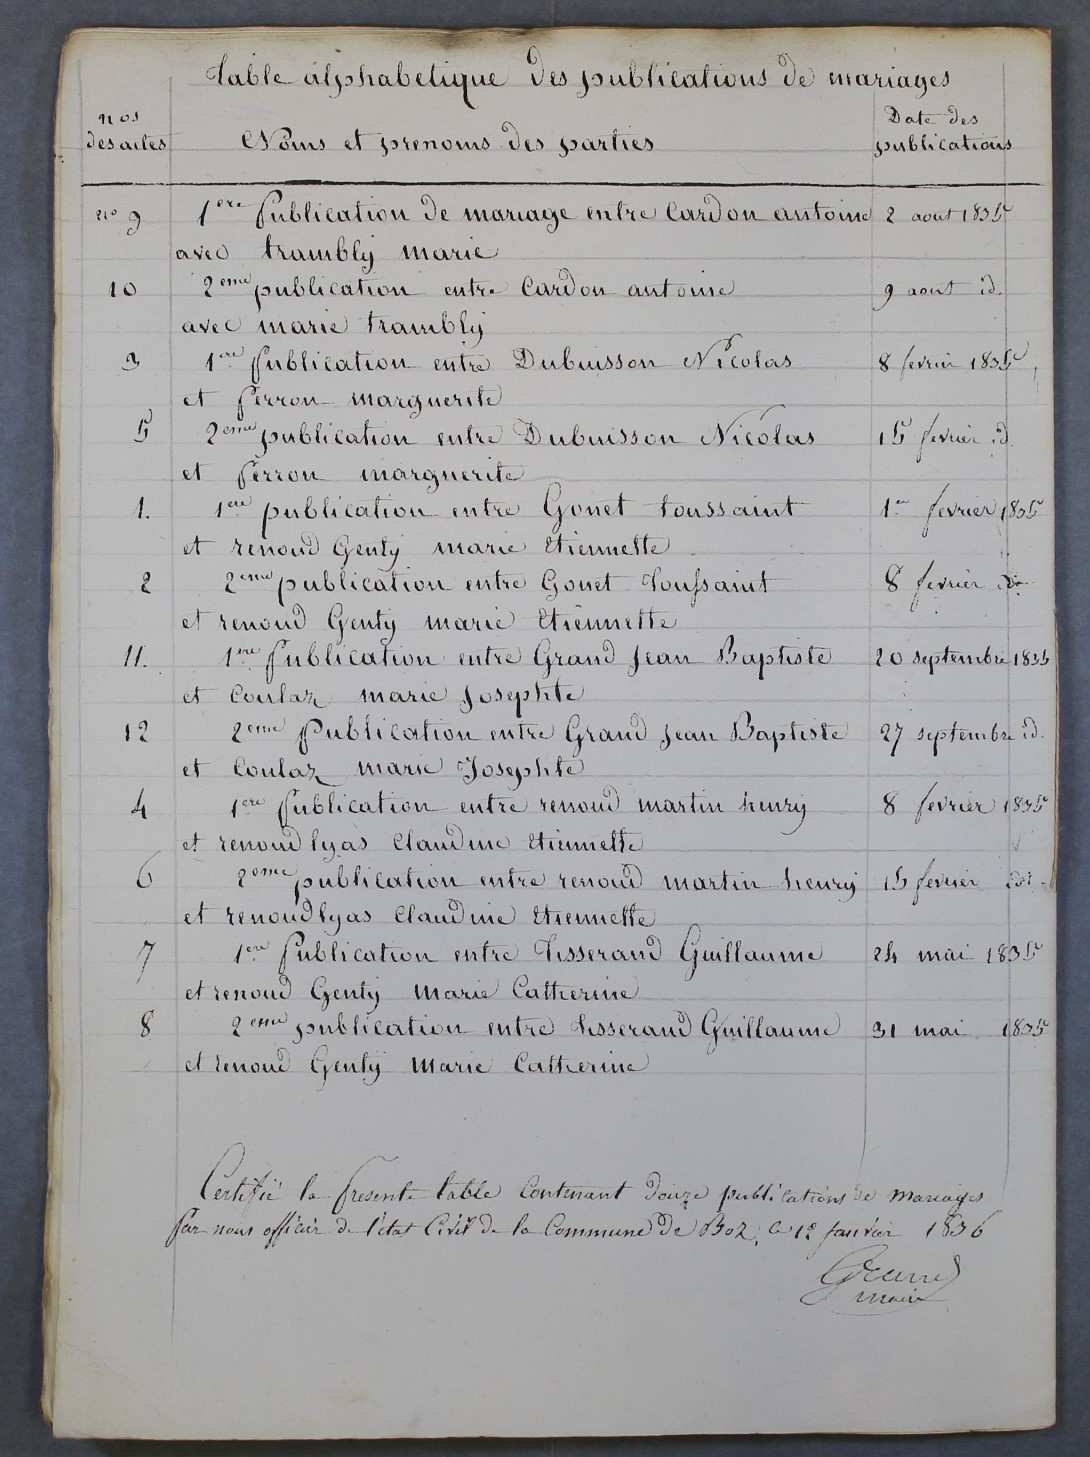 Table alphabetique des publications de mariages
nos des actes
Noms et prenoms des parties
Date des publications
no 9 1ere Publication de mariage entre Cardon antoine 2 aout 1835
avec trambly marie
10 2eme publication entre Cardon antoine 9 aout id.
avec marie trambly
3 1ere Publication entre Dubuisson Nicolas 8 fevrier 1835
et Perron marguerite
5 2eme publication entre Dubuisson Nicolas 15 fevrier id.
et Perron marguerite
1. 1ere publication entre Gonet toussaint 1er fevrier 1835
et renoud Genty marie Etiennette
2 2eme publication entre Gonet Toussaint 8 fevrier
et renoud Genty marie Etiennette
11. 1ere Publication entre Grand Jean Baptiste 20 septembre 1835
et Coulaz marie Josephte
12 2eme Publication entre Grand Jean Baptiste 27 septembre id.
et Coulaz marie Josephte
4 1ere Publication entre renoud martin henry 8 fevrier 1835
et renoud lyas Claudine Etiennette
6 2eme publication entre renoud martin henry 15 fevrier
et renoud lyas Claudine Etiennette
7 1ere Publication entre Tisserand Guillaume 24 mai 1835
et renoud Genty Marie Catherine
8 2eme publication entre Tisserand Guillaume 31 mai 1835
et renoud Genty Marie Catherine
Certifié la Presente table Contenant douze publications de Mariages
Par nous officier de l'état Civil de la Commune de Boz, le 12 Janvier 1836
Grand
maire